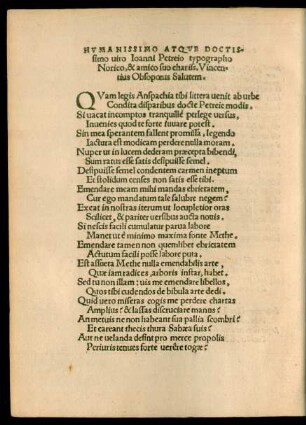 HVMANISSIMO ATQVE DOCTIS-
simo uiro Ioanni Petreio typographo
Norico, & amico suo chariss. Vincen-
tius Obsopœus Salutem.
QVam legis Anspachia tibi littera uenit ab urbe
Condita disparibus docte Petreie modis.
Si uacat incomptos tranquille perlege uersus,
Inuenies quod te forte iuuare potest.
Sin mea sperantem fallent promissa, legendo
Iactura est modicam perdere nulla moram.
Nuper ut in lucem dederam præcepta bibendi,
Sum ratus esse satis desipuisse semel.
Desipuisse semel condentem carmen ineptum
Et stolidum censes non satis esse tibi.
Emendare meam mihi mandas ebrietatem,
Cur ego mandatum tale salubre negem?
Exeat in nostras iterum ut locupletior oras
Scilicet, & pariter uersibus aucta nouis.
Si nescis facili cumulatur parua labore
Manet ut è minimo maxima fonte Methe.
Emendare tamen non quemlibet ebrietatem
Actutum facili posse labore puta.
Est assueta Methe nulla emendabilis arte,
Quæ iam radices, arboris instar, habet.
Sed tu non illam: uis me emendare libellos,
Quos tibi cudendos de bibula arte dedi.
Quid uero miseras cogis me perdere chartas
Amplius? & lassas discruciare manus?
An metuis ne non habeant sua pallia scombri?
Et careant thecis thura Sabæa suis?
Aut ne uelanda desint pro merce propolis
Periuris tenues forte uerêre togæ?